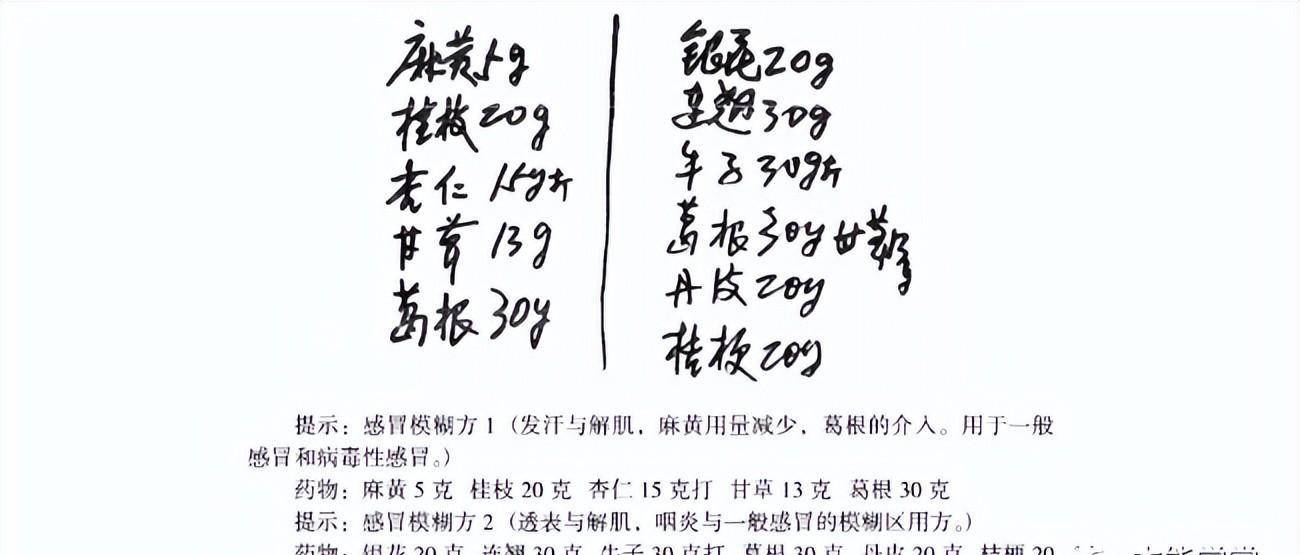 麻黄5g
桂枝20g
杏仁15g打
甘草13g
葛根30g
银花20g
连翘30g
牛子30g打
葛根30g 甘草
丹皮20g
桔梗20g
提示:感冒模糊方1(发汗与解肌,麻黄用量减少,葛根的介入。用于一般
感冒和病毒性感冒。)
药物:麻黄5克 桂枝20克 杏仁15克打 甘草13克 葛根30克
提示:感冒模糊方2(透表与解肌,咽炎与一般感冒的模糊区用方。)
药物:银花20克 连翘30克 牛子30克打 葛根30克 丹皮20克 桔梗20